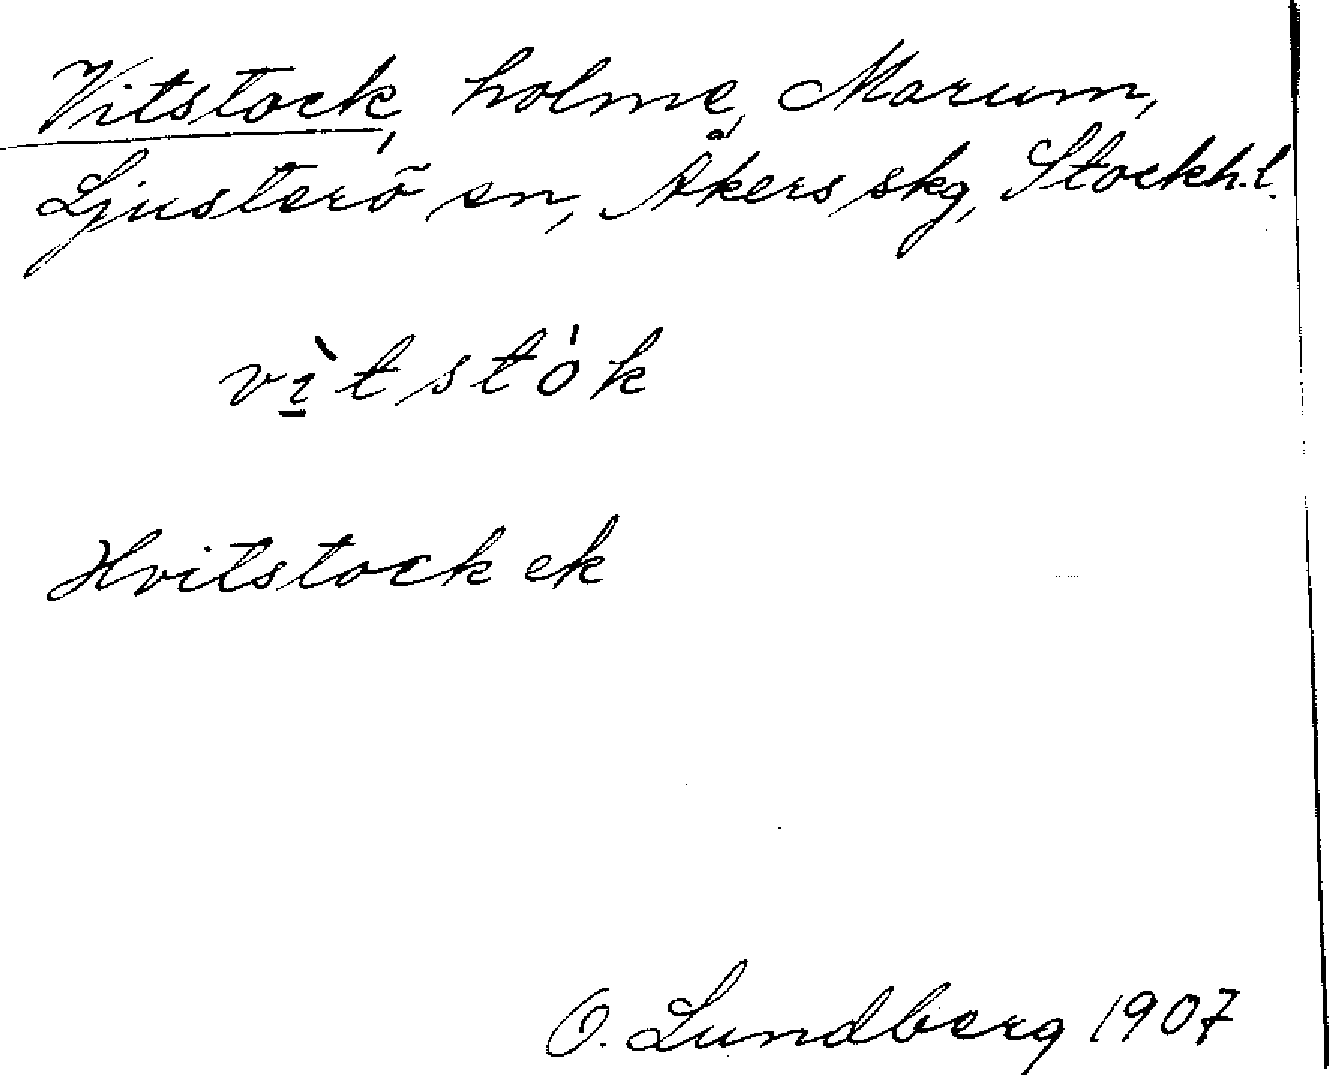 Vitstock, holme, Marum,
Ljusterö sn, Åkers skg, Stockh.l.
vi̱̇̀tstȯ́k
Hvitstock ek
O. Lundberg 1907